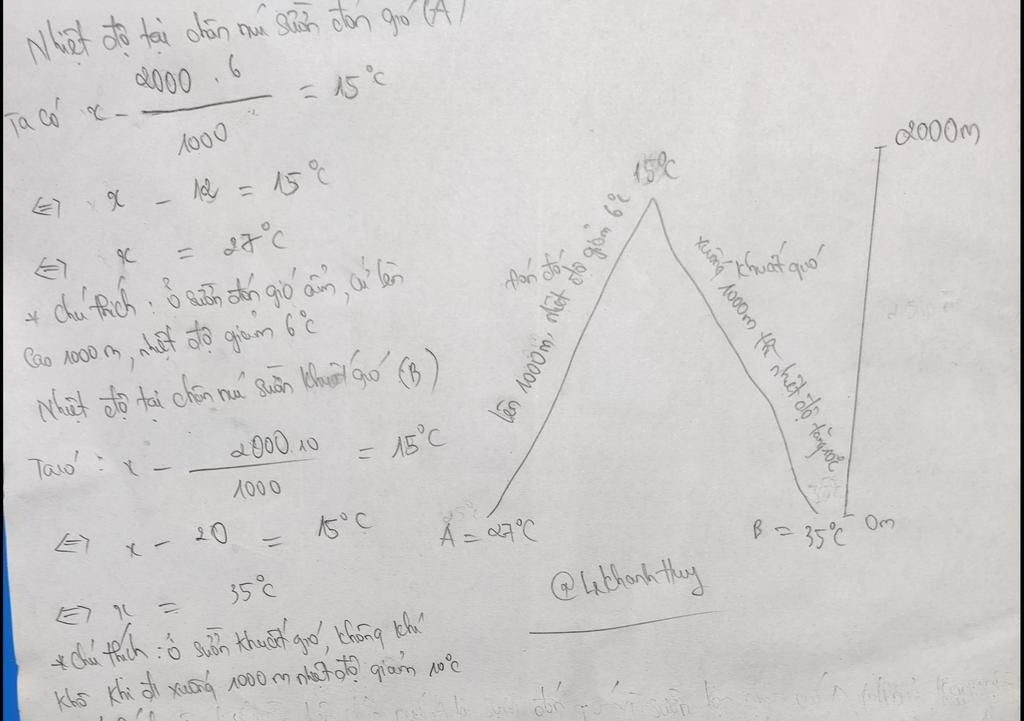 Nhiệt độ tại chân núi sườn đón gió (A)
Ta có x - 2000 . 6 / 1000 = 15°C
⇔ x - 12 = 15°C
⇔ x = 27°C
* Chú thích : ở sườn đón gió ẩm, cứ lên
cao 1000 m, nhiệt độ giảm 6°C
Nhiệt độ tại chân núi sườn khuất gió (B)
Ta có : x - 2000.10 / 1000 = 15°C
⇔ x - 20 = 15°C
⇔ x = 35°C
* Chú thích : ở sườn khuất gió, không khí
khô khi đi xuống 1000 m nhiệt độ giảm 10°C
15°C
2000m
đón đó
lên 1000m, nhiệt độ giảm 6°C
khuất gió
xuống 1000m thì nhiệt độ tăng 10°C
A = 27°C
B = 35°C
0m